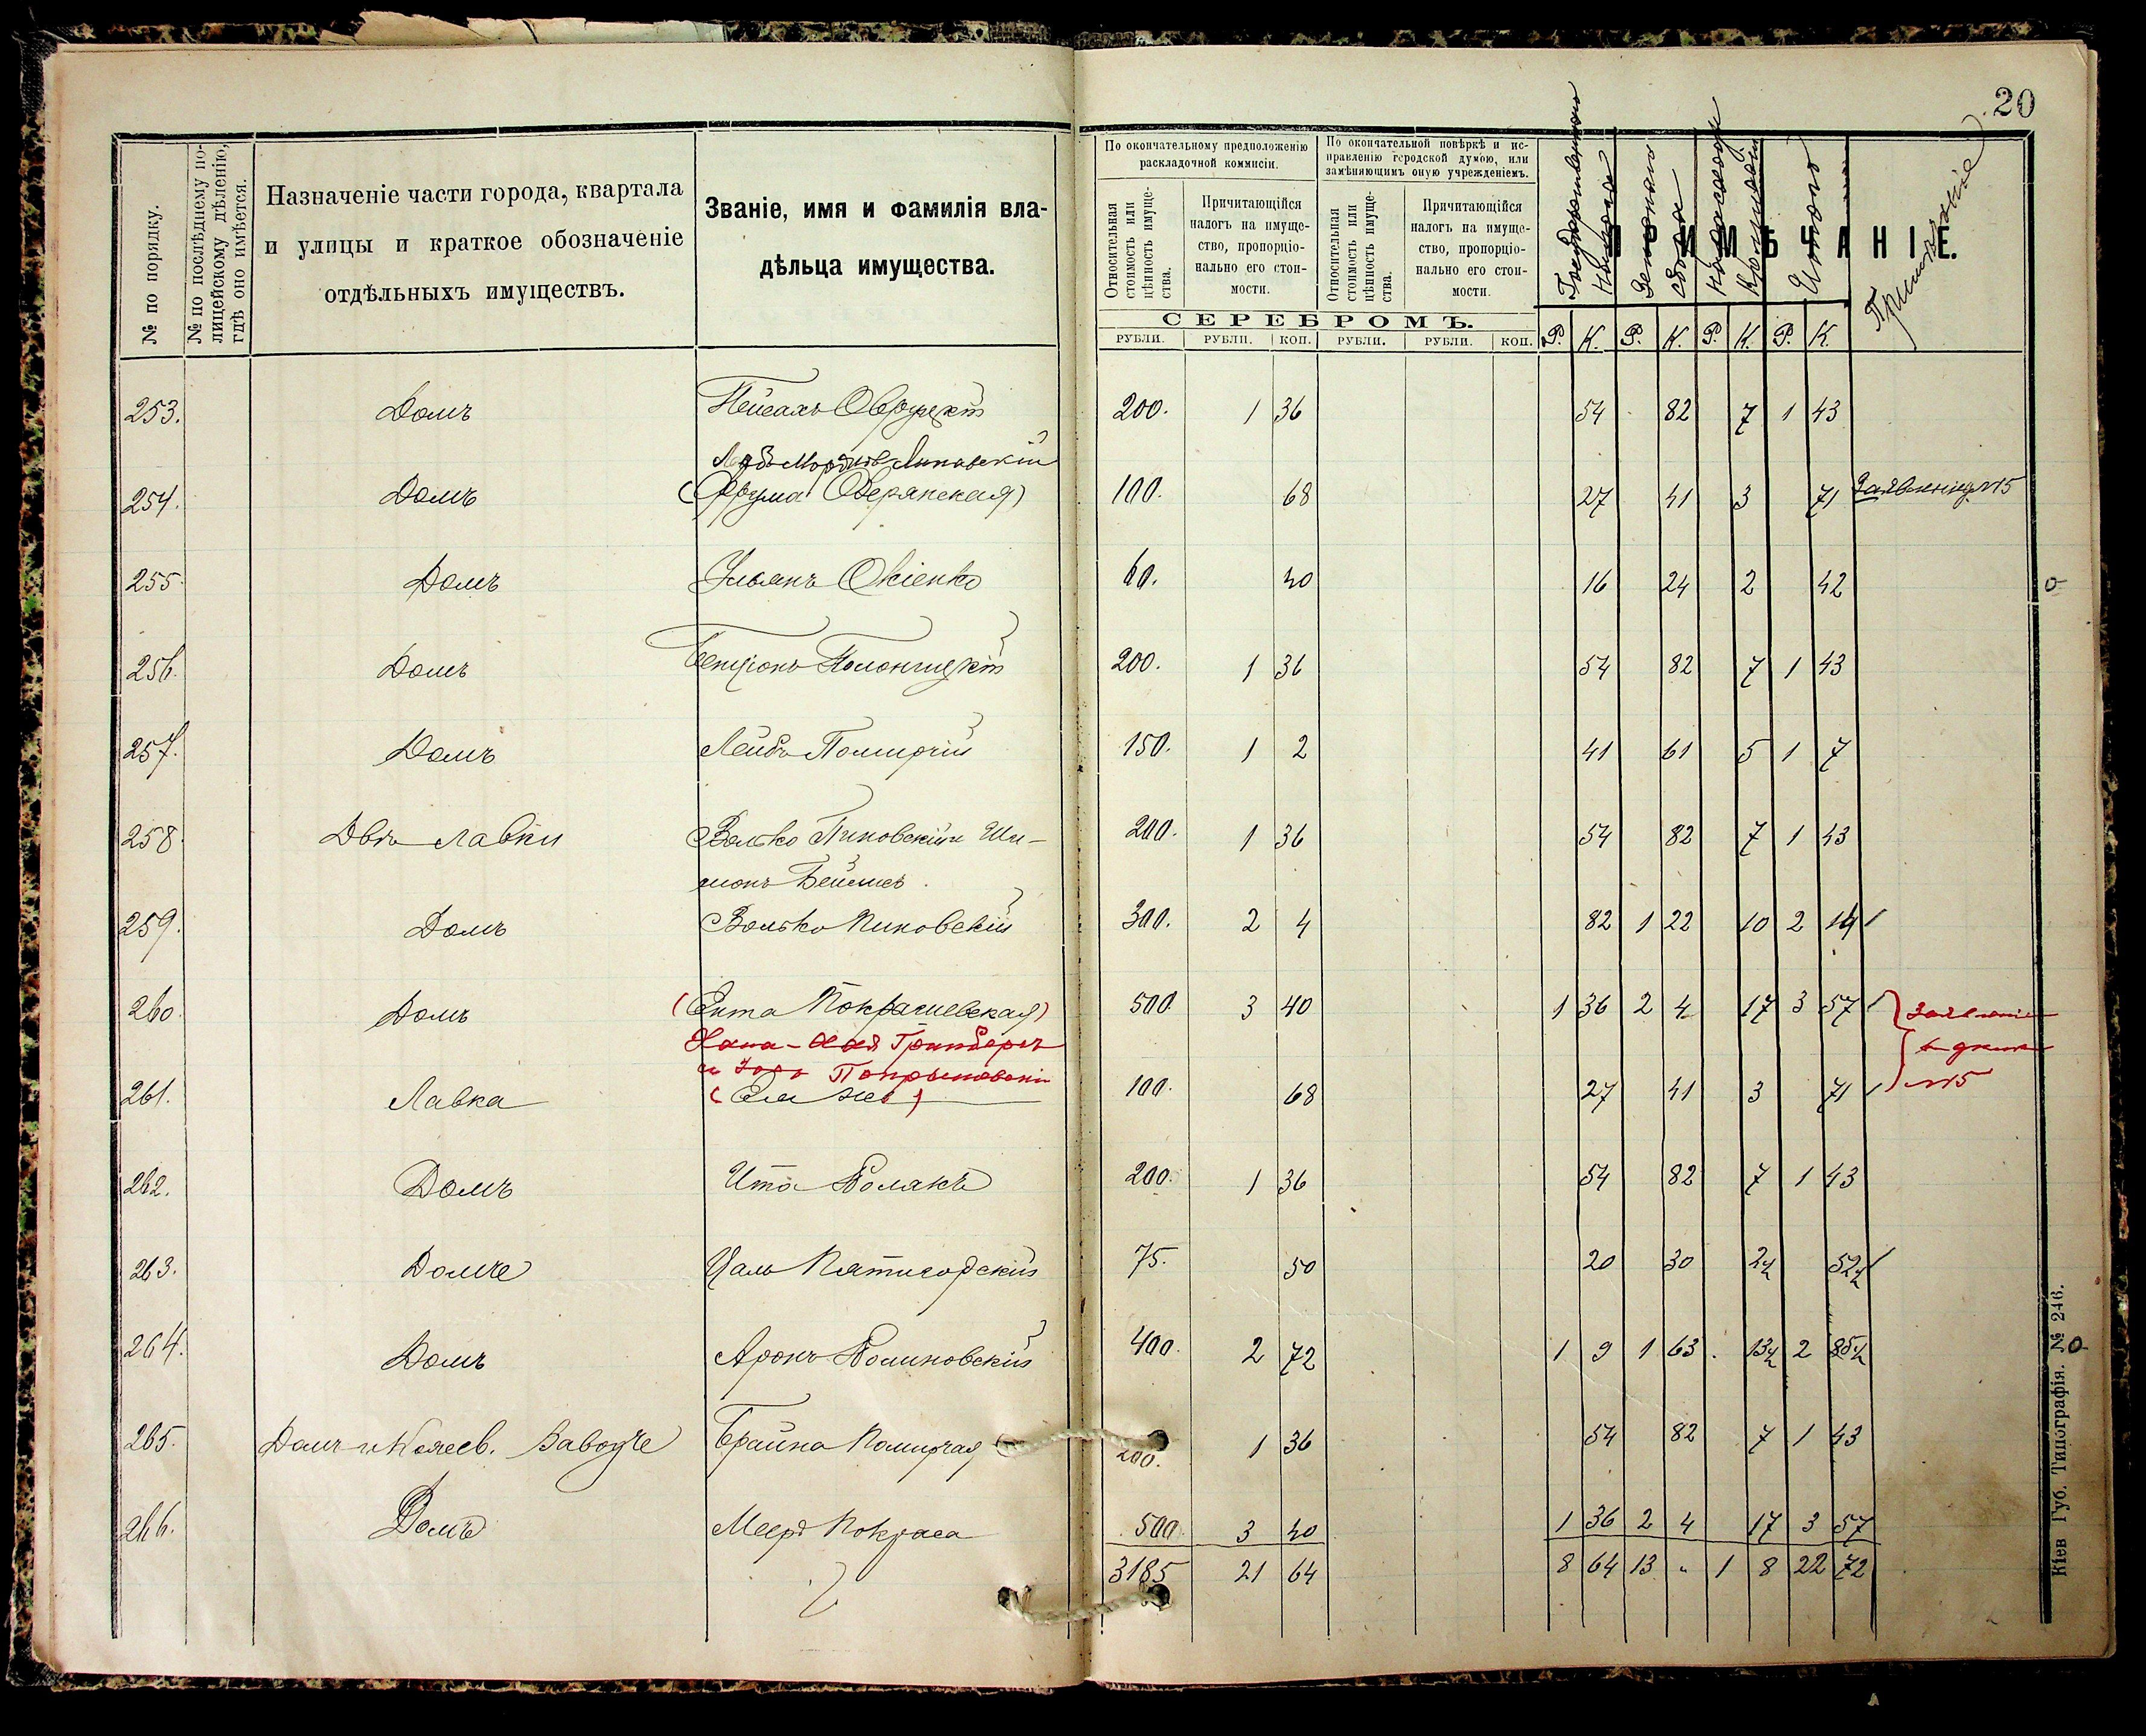 20
№ по порядку.
№ по послѣднему по-
лицейскому дѣленію,
гдѣ оно имѣется.
Назначеніе части города, квартала
и улицы и краткое обозначеніе
отдѣльныхъ имуществъ.
Званіе, имя и фамилія вла-
дѣльца имущества.
По окончательному предположенію
раскладочной коммисіи.
По окончательной повѣркѣ и ис-
правленію городской думою, или
замѣняющимъ оную учрежденіемъ.
Относительная
стоимость или
цѣнность имуще-
ства.
Причитающійся
налогъ на имуще-
ство, пропорціо-
нально его стои-
мости.
Относительная
стоимость или
цѣнность имуще-
ства.
Причитающійся
налогъ на имуще-
ство, пропорціо-
нально его стои-
мости.
ПРИМѢЧАНІЕ.
Государственнаго
Налога
Земскаго
сбора
Итого
Примѣчаніе
СЕРЕБРОМЪ.
РУБЛИ. РУБЛИ. КОП. РУБЛИ. РУБЛИ. КОП. Р. К. Р. К. Р. К. Р. К.
253. Домъ Пейсахъ Овруцкій 200. 1 36 54 82 7 1 43
Липовскій
254. Домъ (Фрума) 100. 68 27 41 3 71 №15
255. Домъ Ульянъ Окіенко 60. 40 16 24 2 42
256. Домъ Бенціонъ 200. 1 36 54 82 7 1 43
257. Домъ Лейбъ Полицкій 150. 1 2 41 61 5 1 7
258. Двѣ Лавки Волько Пиковскій и Ши-
монъ 200. 1 36 54 82 7 1 43
259. Домъ Волько Пиковскій 300. 2 4 82 1 22 10 2 14
260. Домъ (Ента) 500. 3 40 1 36 2 4 17 3 57
Хана-Хая Гринбергъ
261. Лавка (Ея же) 100. 68 27 41 3 71 №15
262. Домъ Ита Полякъ 200. 1 36 54 82 7 1 43
263. Домъ Цаль Пятигорскій 75. 50 20 30 2½ 52½
264. Домъ Аронъ Полиновскій 400. 2 72 1 9 1 63 13½ 2 85½
265. Домъ и Кожев. Заводъ Брайна Полицкая 200. 1 36 54 82 7 1 43
266. Домъ Мееръ Покраса 500 3 40 1 36 2 4 17 3 57
3185 21 64 8 64 13 " 1 8 22 72
Кіев Губ. Типографія. № 246.